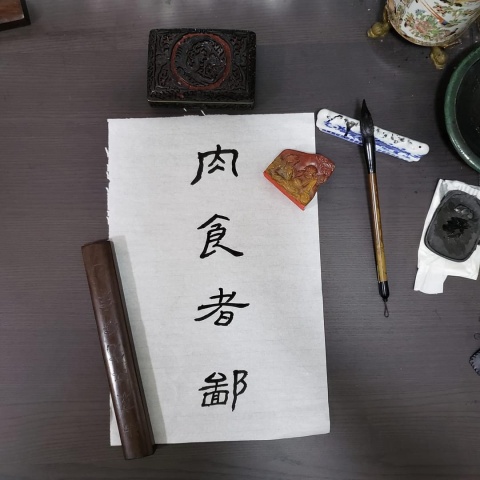 肉食者鄙